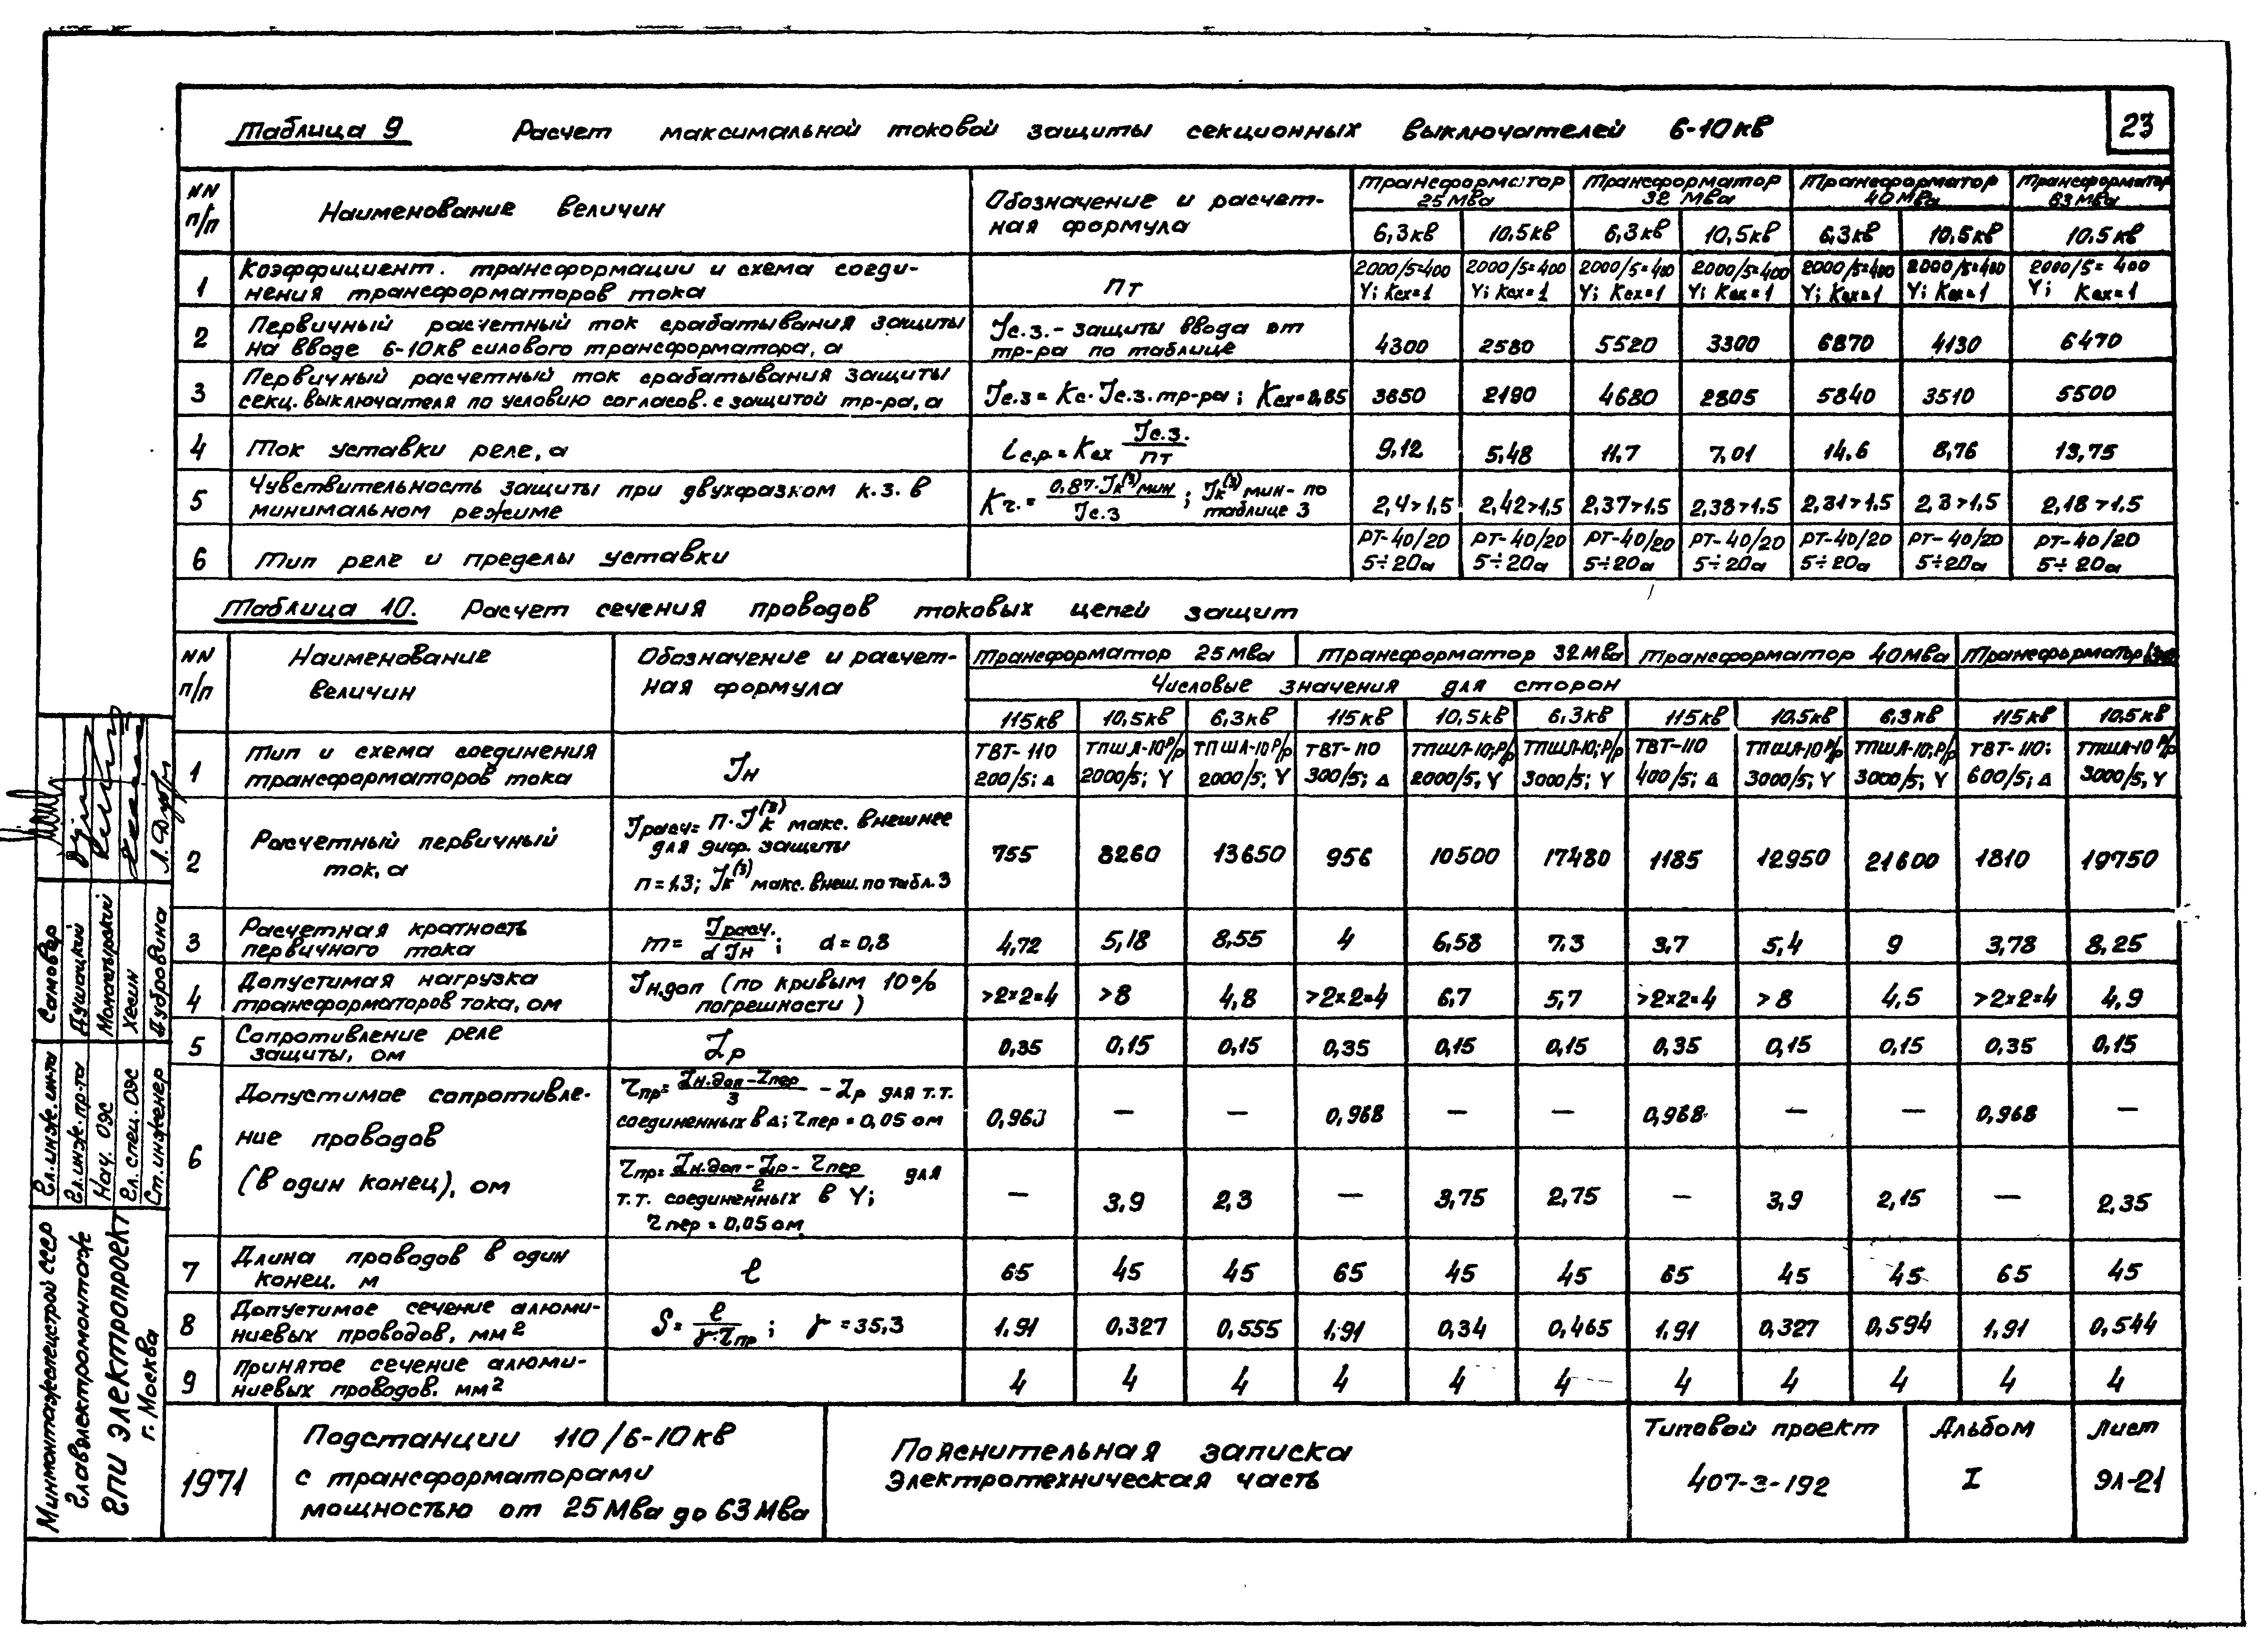 23
Таблица 9 Расчет максимальной токовой защиты секционных выключателей 6-10кв
NN п/п | Наименование величин | Обозначение и расчетная формула | Трансформатор 25мва | Трансформатор 32 мва | Трансформатор 40мва | Трансформатор 63мва
6,3кв | 10,5кв | 6,3кв | 10,5кв | 6,3кв | 10,5кв | 10,5кв
1 | Коэффициент. трансформации и схема соединения трансформаторов тока | nт | 2000/5=400 Y; Kсх=1 | 2000/5=400 Y; Kсх=1 | 2000/5=400 Y; Kсх=1 | 2000/5=400 Y; Kсх=1 | 2000/5=400 Y; Kсх=1 | 2000/5=400 Y; Kсх=1 | 2000/5= 400 Y; Kсх=1
2 | Первичный расчетный ток срабатывания защиты на вводе 6-10кв силового трансформатора, а | Iс.з.- защиты ввода от тр-ра по таблице | 4300 | 2580 | 5520 | 3300 | 6870 | 4130 | 6470
3 | Первичный расчетный ток срабатывания защиты секц. выключателя по условию согласов. с защитой тр-ра, а | Iс.з = Kс·Iс.з. тр-ра; Kсх=0,85 | 3650 | 2190 | 4680 | 2805 | 5840 | 3510 | 5500
4 | Ток уставки реле, а | iс.р.=Kсх Iс.з./nт | 9,12 | 5,48 | 11,7 | 7,01 | 14,6 | 8,76 | 13,75
5 | Чувствительность защиты при двухфазном к.з. в минимальном режиме | Kч.= 0,87·Iк(3)мин/Iс.з ; Iк(3)мин- по таблице 3 | 2,4>1,5 | 2,42>1,5 | 2,37>1,5 | 2,38>1,5 | 2,31>1,5 | 2,3>1,5 | 2,18>1,5
6 | Тип реле и пределы уставки | РТ-40/20 5÷20а | РТ-40/20 5÷20а | РТ-40/20 5÷20а | РТ-40/20 5÷20а | РТ-40/20 5÷20а | РТ-40/20 5÷20а | РТ-40/20 5÷20а
Таблица 10. Расчет сечения проводов токовых цепей защит
NN п/п | Наименование величин | Обозначение и расчетная формула | Трансформатор 25мва | Трансформатор 32мва | Трансформатор 40мва | Трансформатор
Числовые значения для сторон
115кв | 10,5кв | 6,3кв | 115кв | 10,5кв | 6,3кв | 115кв | 10,5кв | 6,3кв | 115кв | 10,5кв
1 | Тип и схема соединения трансформаторов тока | Iн | ТВТ-110 200/5; Δ | ТПШЛ-10Р/р 2000/5; Y | ТПШЛ-10Р/р 2000/5; Y | ТВТ-110 300/5; Δ | ТПШЛ-10;Р/р 2000/5, Y | ТПШЛ-10;Р/р 3000/5; Y | ТВТ-110 400/5; Δ | ТПШЛ-10Р/р 3000/5, Y | ТПШЛ-10;Р/р 3000/5; Y | ТВТ-110; 600/5; Δ | ТПШЛ-10 Р/р 3000/5, Y
2 | Расчетный первичный ток, а | Iрасч= n·Iк(3) макс. внешнее для диф. защиты n=1,3; Iк(3) макс. внеш. по табл. 3 | 755 | 8260 | 13650 | 956 | 10500 | 17480 | 1185 | 12950 | 21600 | 1810 | 19750
3 | Расчетная кратность первичного тока | m= Iрасч./α Iн ; α=0,8 | 4,72 | 5,18 | 8,55 | 4 | 6,58 | 7,3 | 3,7 | 5,4 | 9 | 3,78 | 8,25
4 | Допустимая нагрузка трансформаторов тока, ом | Zн.доп (по кривым 10% погрешности) | >2×2=4 | >8 | 4,8 | >2×2=4 | 6,7 | 5,7 | >2×2=4 | >8 | 4,5 | >2×2=4 | 4,9
5 | Сопротивление реле защиты, ом | Zр | 0,35 | 0,15 | 0,15 | 0,35 | 0,15 | 0,15 | 0,35 | 0,15 | 0,15 | 0,35 | 0,15
6 | Допустимое сопротивление проводов (в один конец), ом | rпр= Zн.доп-rпер/3 - Zр для т.т. соединенных в Δ; rпер = 0,05 ом | 0,963 | — | — | 0,968 | — | — | 0,968 | — | — | 0,968 | —
rпр= Zн.доп - Zр - rпер/2 для т.т. соединенных в Y; rпер = 0,05 ом | — | 3,9 | 2,3 | — | 3,75 | 2,75 | — | 3,9 | 2,15 | — | 2,35
7 | Длина проводов в один конец. м | ℓ | 65 | 45 | 45 | 65 | 45 | 45 | 65 | 45 | 45 | 65 | 45
8 | Допустимое сечение алюминиевых проводов, мм² | S= ℓ/γ·rпр ; γ=35,3 | 1,91 | 0,327 | 0,555 | 1,91 | 0,34 | 0,465 | 1,91 | 0,327 | 0,594 | 1,91 | 0,544
9 | Принятое сечение алюминиевых проводов. мм² | 4 | 4 | 4 | 4 | 4 | 4 | 4 | 4 | 4 | 4 | 4
1971
Подстанции 110/6-10кв
с трансформаторами
мощностью от 25Мва до 63Мва
Пояснительная записка
Электротехническая часть
Типовой проект
407-3-192
Альбом
I
Лист
ЭЛ-21
Минмонтажспецстрой СССР
Главэлектромонтаж
ГПИ ЭЛЕКТРОПРОЕКТ
г. Москва
Гл. инж. ин-та Самовер
Гл. инж. пр-та Душацкий
Нач. ОЭС
Гл. спец. ОЭС Хесин
Ст. инженер Дубровина